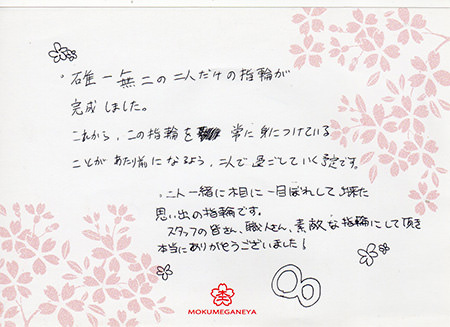 ・確一無二の二人だけの指輪が
完成しました。
これから、この指輪を 常に身につけている
ことが あたり前になるよう、二人で過ごしていく予定です。
・二人一緒に木目に一目ぼれして 出来た
思い出の指輪です。
スタッフの皆さん、職人さん、素敵な指輪にして頂き
本当にありがとうございました!
MOKUMEGANEYA